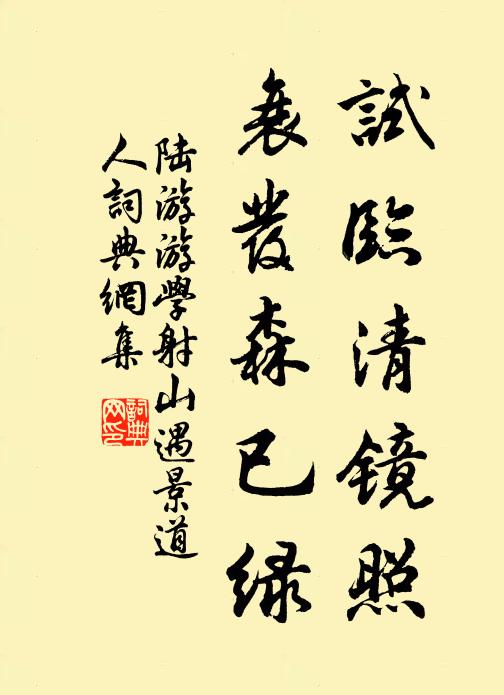 試臨清鏡照
衰發森已绿
陆游游學射山遇景道
人詞典網集
詞典
网印